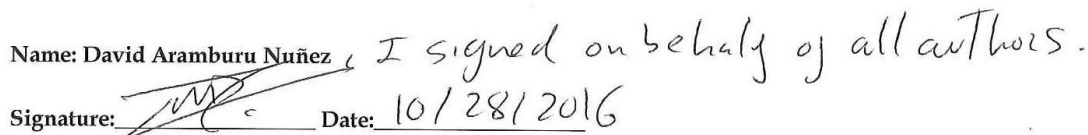 Name: David Aramburu Nuñez, I signed on behalf of all authors.
Signature: Date: 10/28/2016